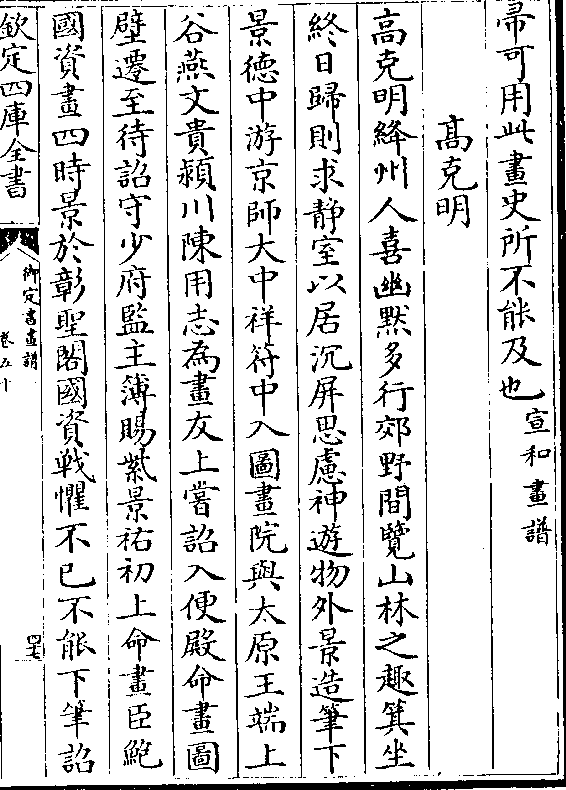 帚可用此畫史所不能及也宣和畫譜
高克明
高克明絳州人喜幽默多行郊野間覽山林之趣箕坐
終日歸則求靜室以居沉屏思慮神遊物外景造筆下
景德中游京師大中祥符中入圖畫院與太原王端上
谷燕文貴潁川陳用志為畫友上嘗詔入便殿命畫圖
壁遷至待詔守少府監主簿賜紫景祐初上命畫臣鮑
國資畫四時景於彰聖閣國資戰懼不已不能下筆詔
欽定四庫全書
御定書畫譜
卷五十
四七